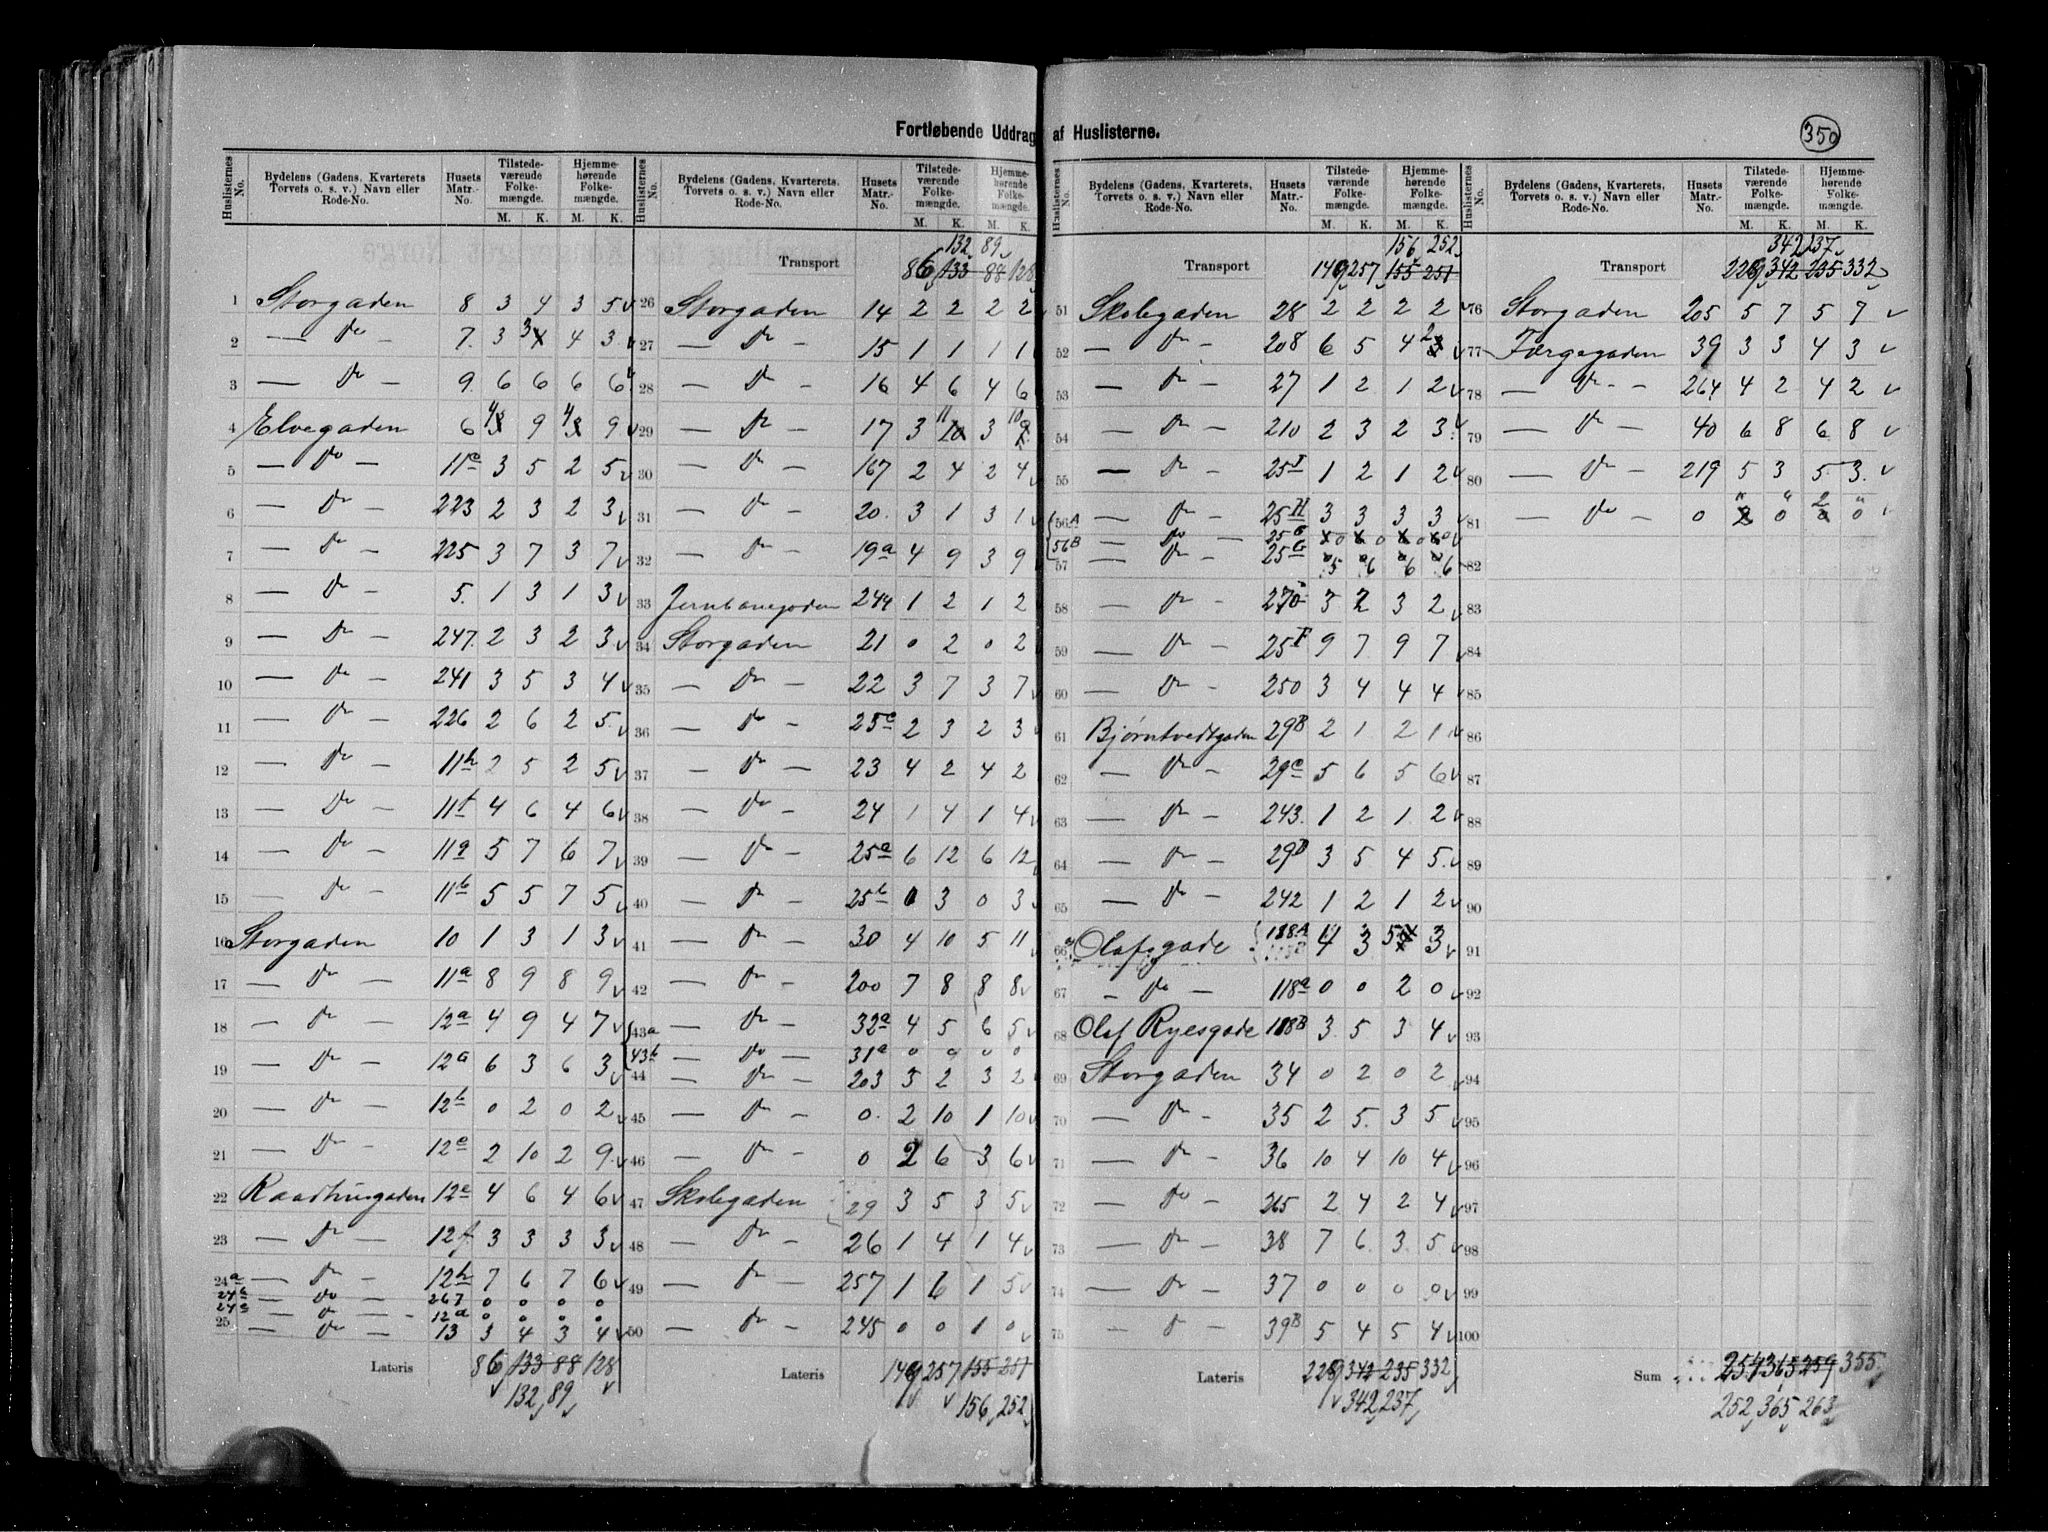 Fortløbende Uddrag af Huslisterne.
350
Huslisternes No. Bydelens (Gadens, Kvarterets, Torvets o. s. v.) Navn eller Rode-No. Husets Matr.-No. Tilstedeværende Folkemængde. M. K. Hjemmehørende Folkemængde. M. K.
1 Storgaden 8 3 4 3 5
2 — Do — 7. 3 3 4 3
3 — Do — 9. 6 6 6 6
4 Elvegaden 6 4 9 4 9
5 — Do — 11a 3 5 2 5
6 — Do — 223 2 3 2 3
7 — Do — 225 3 7 3 7
8 — Do — 5. 1 3 1 3
9 — Do — 247. 2 3 2 3
10 — Do — 241 3 5 3 4
11 — Do — 226 2 6 2 5
12 — Do — 11h 2 5 2 5
13 — Do — 11f 4 6 4 6
14 — Do — 11g 5 7 6 7
15 — Do — 11b 5 5 7 5
16 Storgaden 10 1 3 1 3
17 — Do — 11a 8 9 8 9
18 — Do — 12a 4 9 4 7
19 — Do — 12a 6 3 6 3
20 — Do — 12b 0 2 0 2
21 — Do — 12e 2 10 2 9
22 Raadhusgaden 12e 4 6 4 6
23 — Do — 12f 3 3 3 3
24a — Do — 12h 7 6 7 6
24b — Do — 267 0 0 0 0
24c — Do — 12a 0 0 0 0
25 — Do — 13 3 4 3 4
Lateris 86 133 88 128
132 89
Huslisternes No. Bydelens (Gadens, Kvarterets, Torvets o. s. v.) Navn eller Rode-No. Husets Matr.-No. Tilstedeværende Folkemængde. M. K. Hjemmehørende Folkemængde. M. K.
132 89
Transport 86 133 88 128
26 Storgaden 14 2 2 2 2
27 — Do — 15 1 1 1 1
28 — Do — 16 4 6 4 6
29 — Do — 17 3 11 3 10
30 — Do — 167 2 4 2 4
31 — Do — 20. 3 1 3 1
32 — Do — 19a 4 9 3 9
33 Jernbanegaden 244 1 2 1 2
34 Storgaden 21 0 2 0 2
35 — Do — 22 3 7 3 7
36 — Do — 25c 2 3 2 3
37 — Do — 23 4 2 4 2
38 — Do — 24 1 4 1 4
39 — Do — 25a 6 12 6 12
40 — Do — 25b 0 3 0 3
41 — Do — 30 4 10 5 11
42 — Do — 200 7 8 8 8
43a — Do — 32a 4 5 6 5
43b — Do — 31a 0 0 0 0
44 — Do — 203 3 2 3 2
45 — Do — 0. 2 10 1 10
46 — Do — 0 2 6 3 6
47 Skolegaden 29 3 5 3 5
48 — Do — 26 1 4 1 4
49 — Do — 257 1 6 1 5
50 — Do — 245 0 0 1 0
Lateris 149 257 155 251
156 252
Huslisternes No. Bydelens (Gadens, Kvarterets, Torvets o. s. v.) Navn eller Rode-No. Husets Matr.-No. Tilstedeværende Folkemængde. M. K. Hjemmehørende Folkemængde. M. K.
156 252
Transport 149 257 155 251
51 Skolegaden 28 2 2 2 2
52 — Do — 208 6 5 4 2
53 — Do — 27 1 2 1 2
54 — Do — 210 2 3 2 3
55 — Do — 25I 1 2 1 2
56A — Do — 25H 3 3 3 3
56B — Do — 25G 0 0 0 0
57 — Do — 25G 5 6 6 6
58 — Do — 270 3 2 3 2
59 — Do — 25F 9 7 9 7
60 — Do — 250 3 4 4 4
61 Bjørntvedtgaden 29B 2 1 2 1
62 — Do — 29c 5 6 5 6
63 — Do — 243. 1 2 1 2
64 — Do — 29D 3 5 4 5
65 — Do — 242 1 2 1 2
66a Olafsgade 188A 4 3 5 3
67 — Do — 118a 0 0 2 0
68 Olaf Ryesgade 188B 3 5 3 4
69 Storgaden 34 0 2 0 2
70 — Do — 35 2 5 3 5
71 — Do — 36 10 4 10 4
72 — Do — 265 2 4 2 4
73 — Do — 38 7 6 3 5
74 — Do — 37 0 0 0 0
75 — Do — 39B 5 4 5 4
Lateris 229 342 235 332
342 237
Huslisternes No. Bydelens (Gadens, Kvarterets, Torvets o. s. v.) Navn eller Rode-No. Husets Matr.-No. Tilstedeværende Folkemængde. M. K. Hjemmehørende Folkemængde. M. K.
342 237
Transport 229 342 235 332
76 Storgaden 205 5 7 5 7
77 Færgegaden 39 3 3 4 3
78 — Do — 264 4 2 4 2
79 — Do — 40 6 8 6 8
80 — Do — 219 5 3 5 3
81 — Do — 0 " " 2 "
82
83
84
85
86
87
88
89
90
91
92
93
94
95
96
97
98
99
100
Sum 254 365 259 355
252 365 263